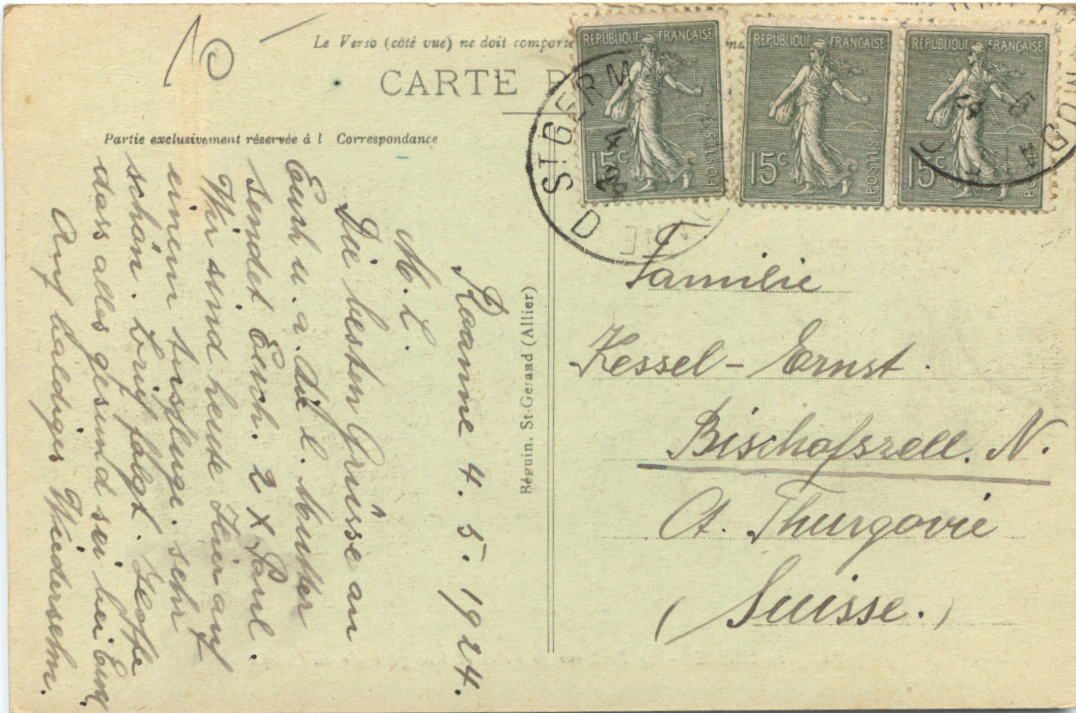 Le Verso (côté vue) ne doit comporte
CARTE P
Partie exclusivement réservée à l Correspondance
10
RÉPUBLIQUE FRANÇAISE
15c
POSTES
RÉPUBLIQUE FRANÇAISE
15c
POSTES
RÉPUBLIQUE FRANÇAISE
15c
POSTES
ST GERM
D
Roanne 4. 5. 1924.
M. L.
Die besten Grüsse an
Euch u. a. die l. Mutter
sendet Euch. 2 x Paul.
Wir sind heute hier auf
einem Ausfluge. sehr
schön. Brief folgt. Hoffe
dass alles gesund sei bei Euch.
Auf baldiges Wiedersehn.
Béguin, St-Gerand (Allier)
Familie
Kessel - Ernst.
Bischofszell. N.
Ct. Thurgovie
(Suisse.)